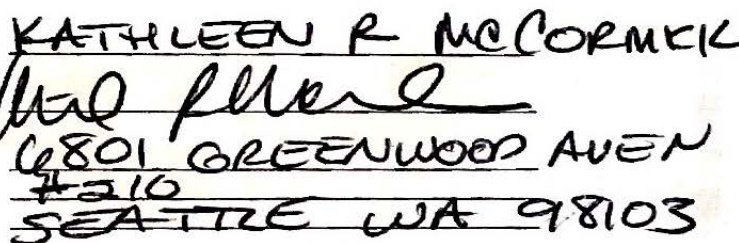 KATHLEEN R MCCORMICK
6801 GREENWOOD AVEN
#210
SEATTLE WA 98103